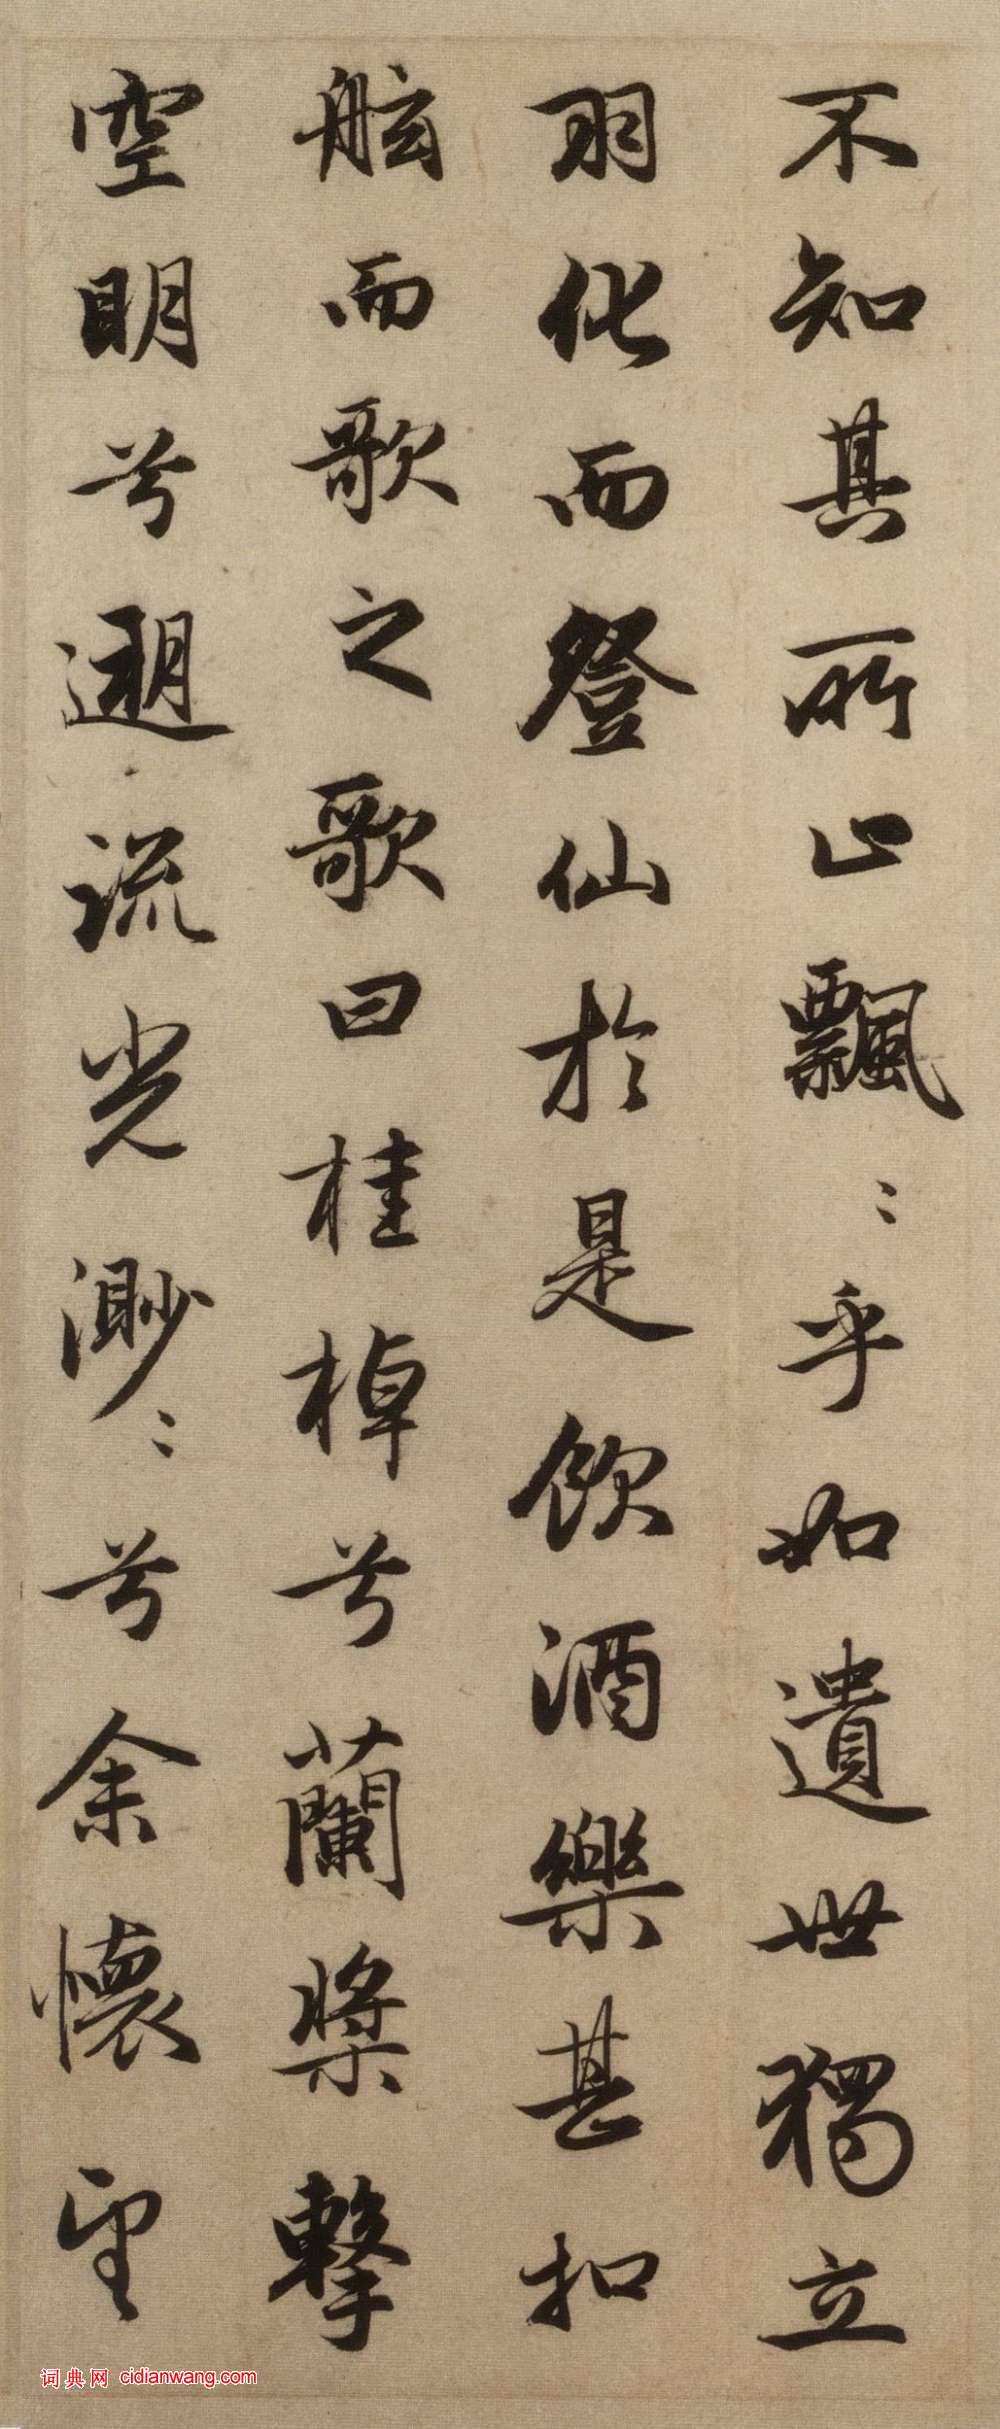 不知其所止飄〻乎如遺世獨立
羽化而登仙於是飲酒樂甚扣
舷而歌之歌曰桂棹兮蘭槳擊
空明兮遡流光渺〻兮余懷望
词典网 cidianwang.com